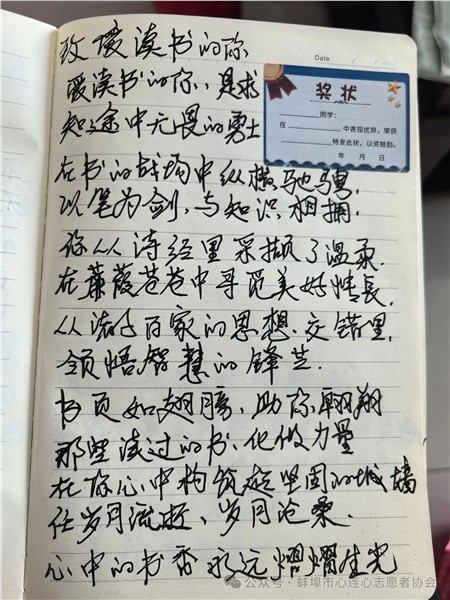 致爱读书的你
Date.
爱读书的你,是求
知途中无畏的勇士
奖状
同学:
在 中表现优异,荣获
特发此状,以资鼓励。
年 月 日
在书的战场中纵横驰骋
以笔为剑,与知识相拥.
你从诗经里采撷了温柔.
在蒹葭苍苍中寻觅美好情长,
从诸子百家的思想交错里,
领悟智慧的锋芒.
书页如翅膀,助你翱翔
那些读过的书,化做力量
在你心中构筑起坚固的城墙
任岁月流逝、岁月沧桑.
心中的书香永远熠熠生光
公众号·蚌埠市心连心志愿者协会